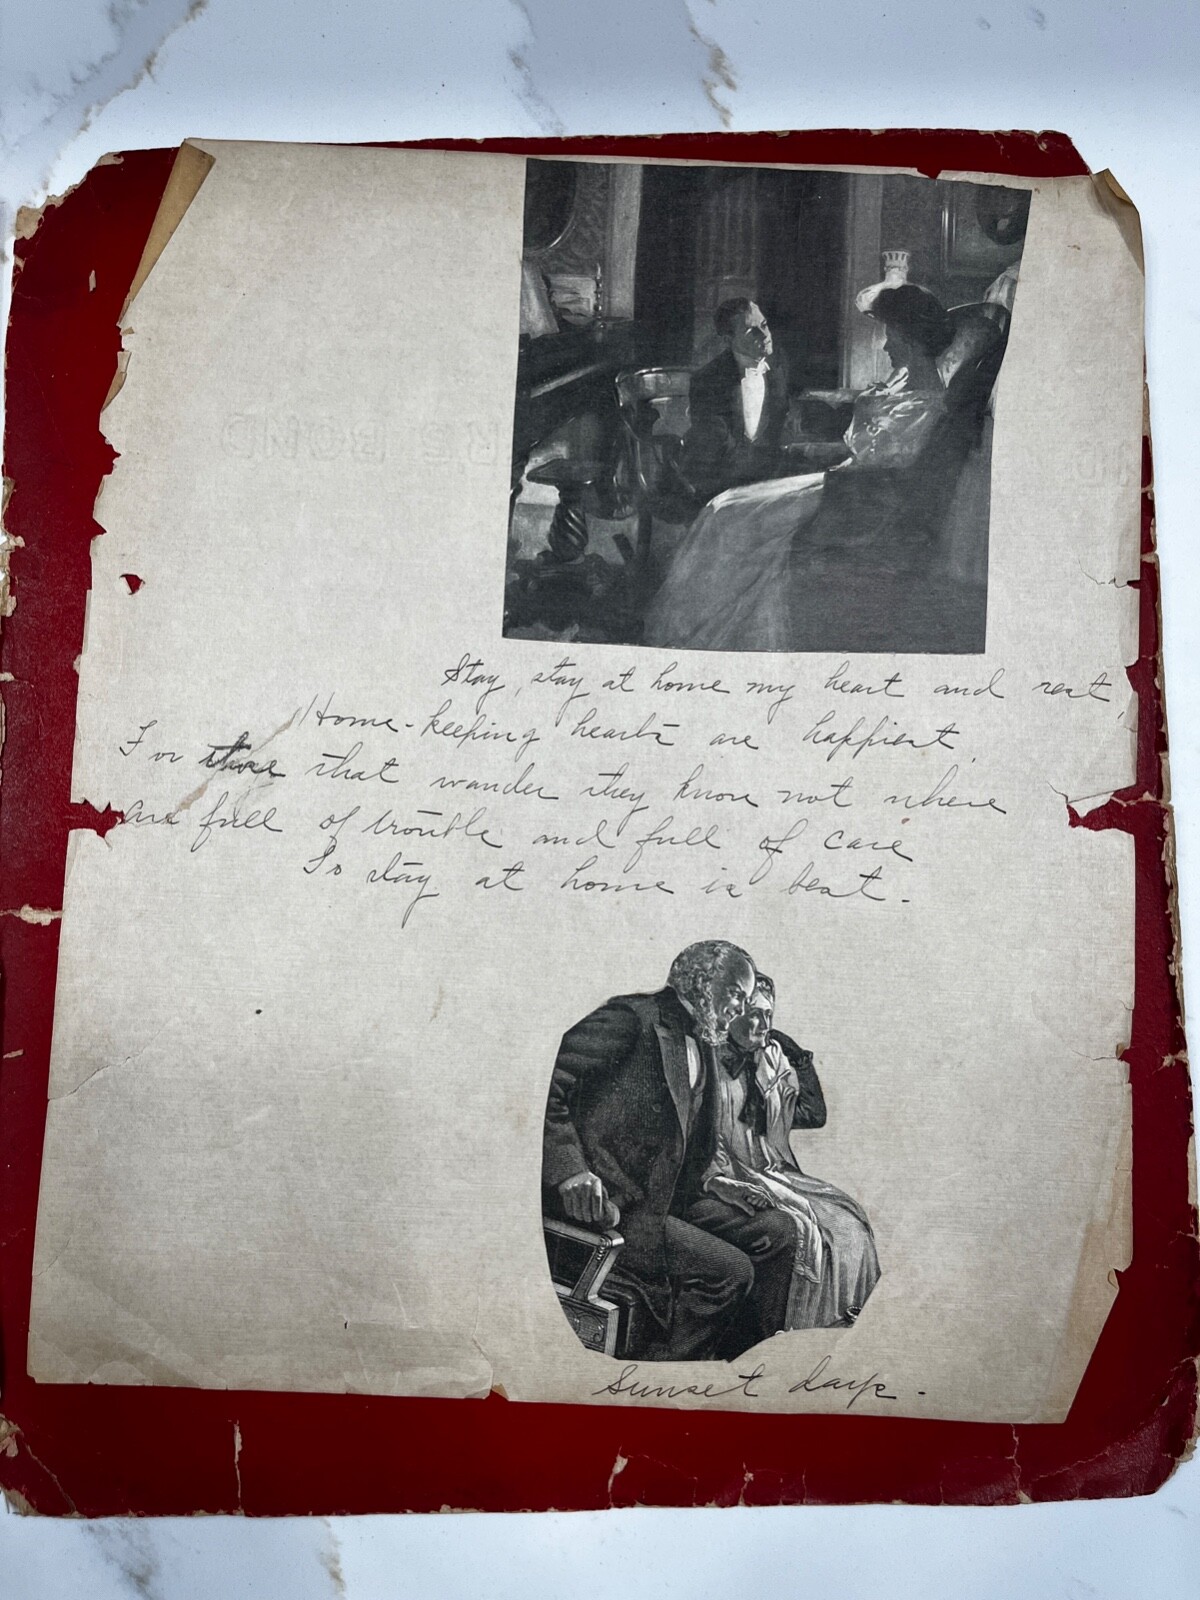 Stay, stay at home my heart and rest,
Home-keeping hearts are happiest.
For those that wander they know not where
Are full of trouble and full of care
To stay at home is best.
Sunset days.